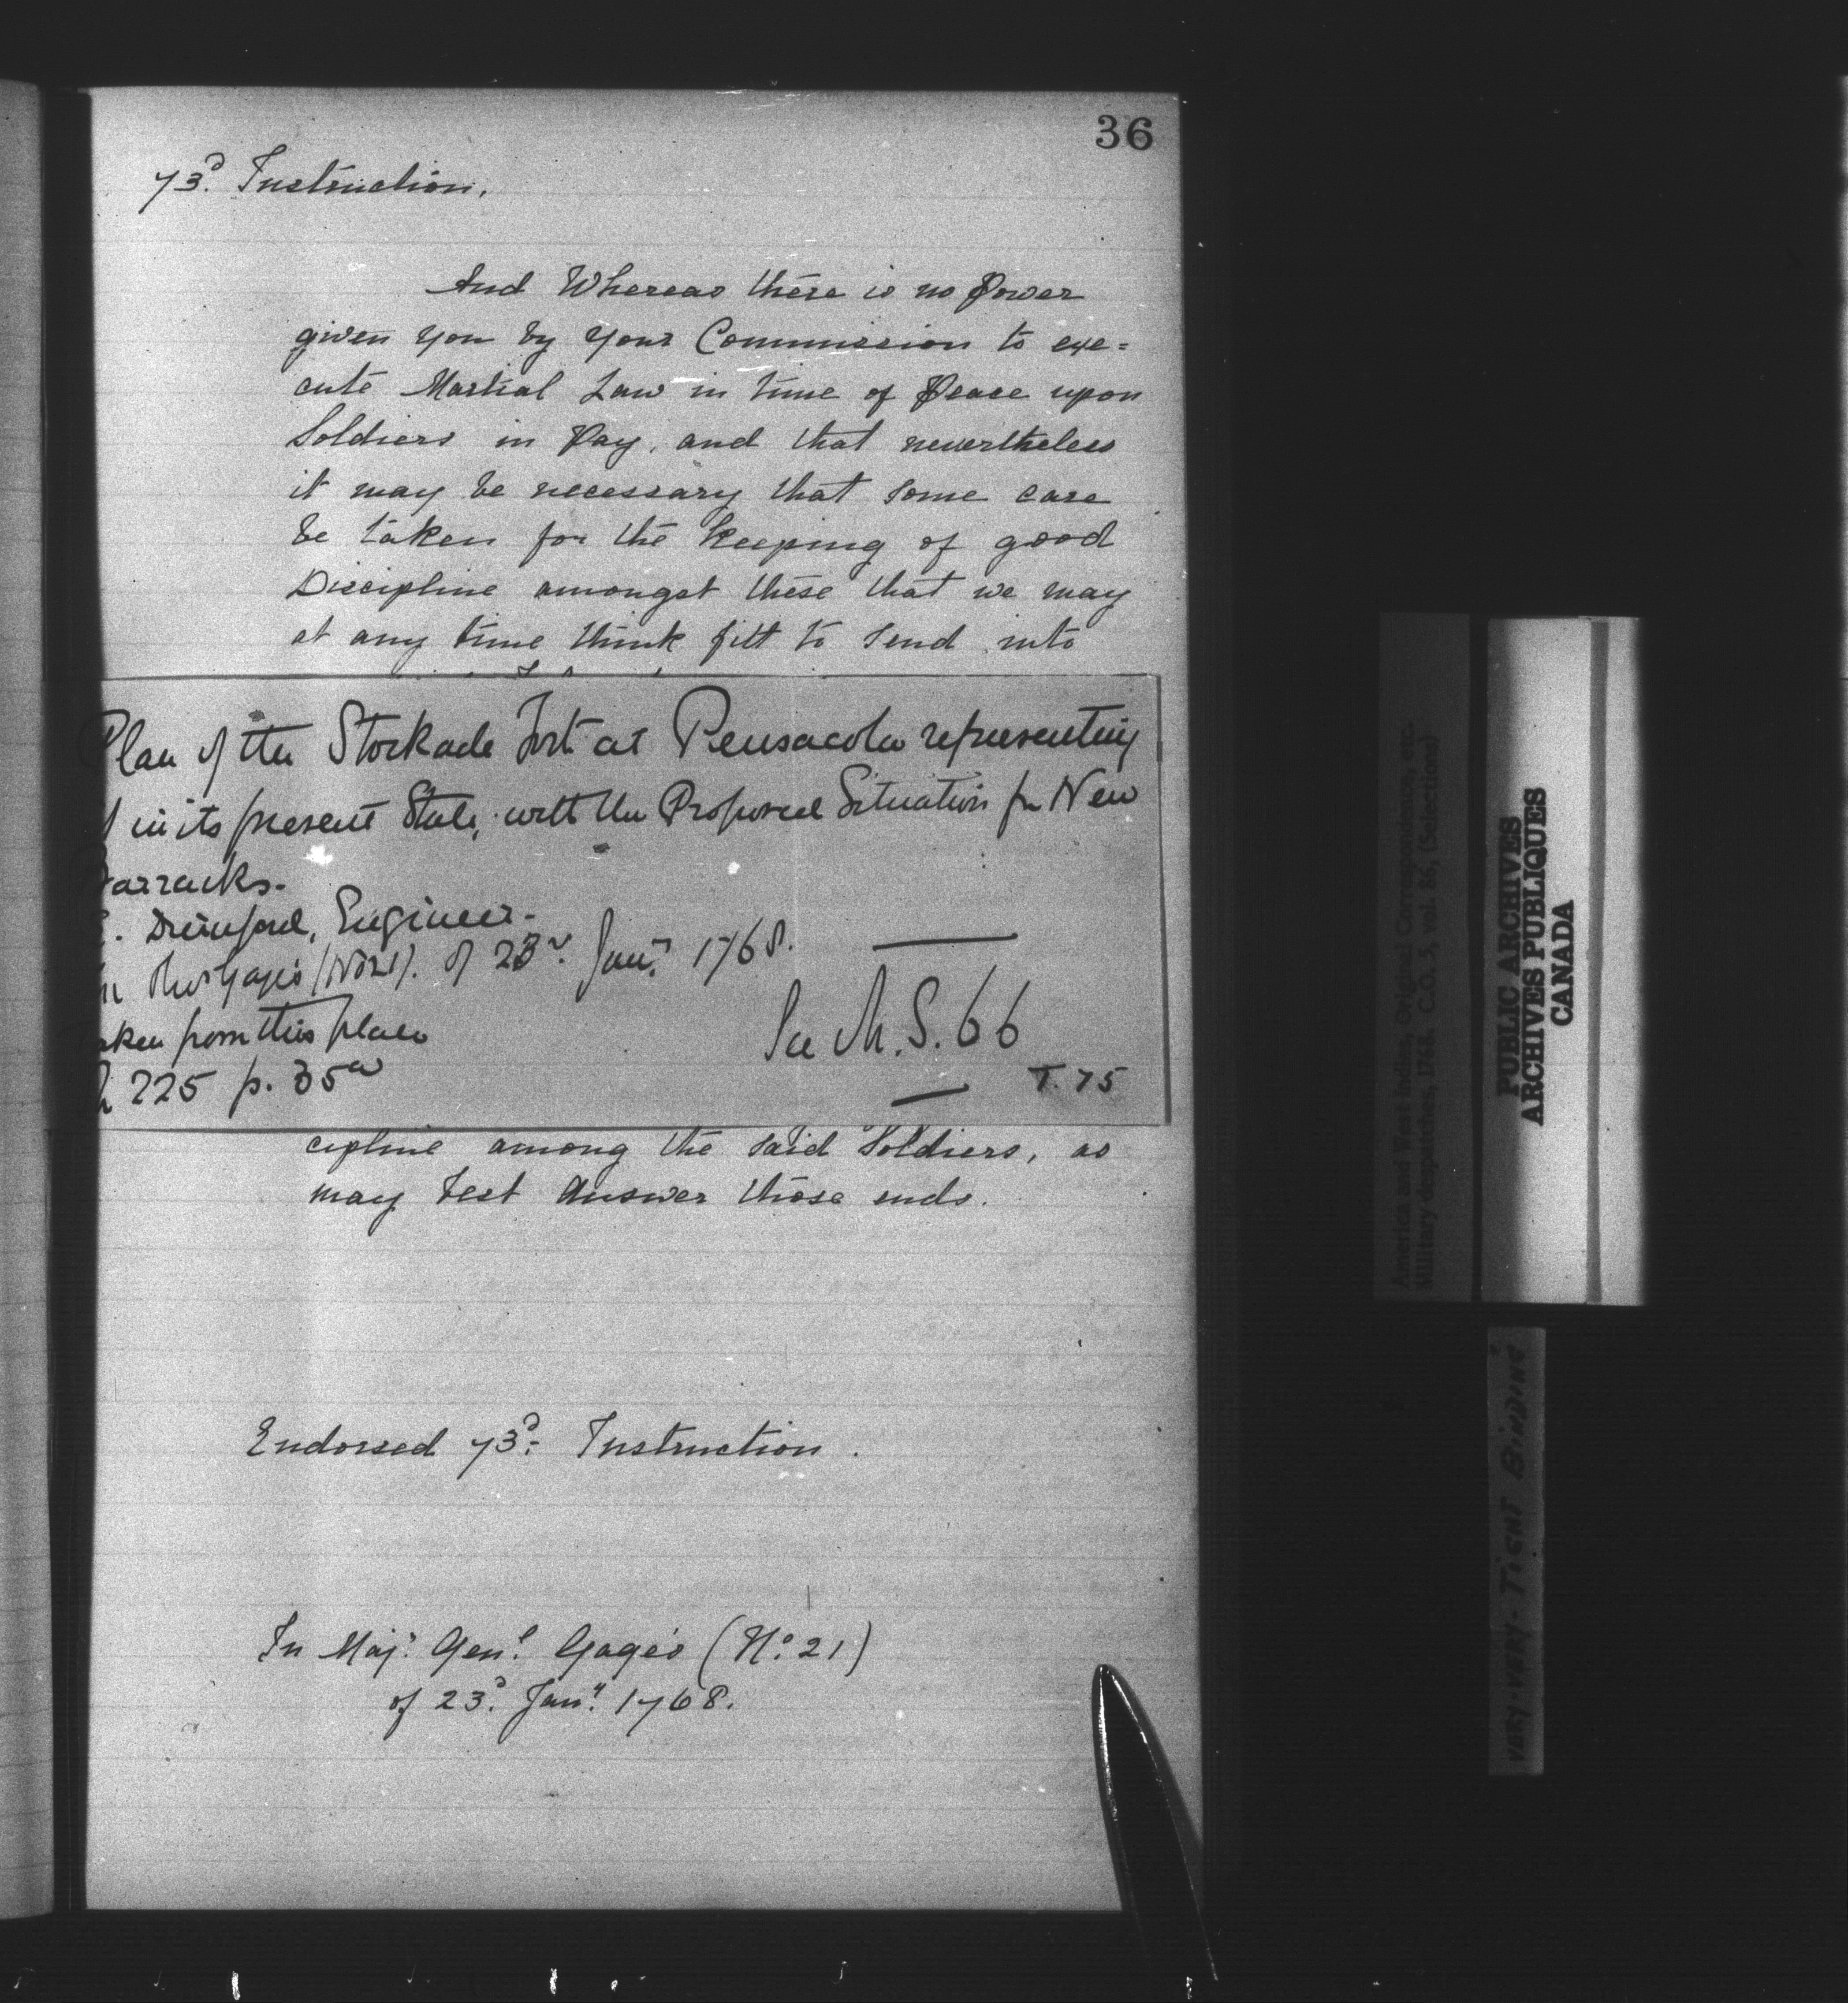 36
73.d Instruction.
And Whereas there is no Power
given you by your Commission to exe=
cute Martial Law in time of Peace upon
Soldiers in Pay, and that nevertheless
it may be necessary that some care
be taken for the keeping of good
Discipline amongst those that we may
at any time think fitt to send into
Plan of the Stockade Fort at Pensacola representing
in its present State, with the Proposed Situation for New
Barracks.
Durnford, Engineer.
Gage's (No 21). of 23d. Jany. 1768.
taken from this place
See M.S. 66
225 p. 35a
T. 75
cipline among the said Soldiers, as
may best Answer those ends.
Endorsed 73.d Instruction.
In Maj.r Gen.l Gage's (No. 21)
of 23.d Jan.y 1768.
America and West Indies, Original Correspondence, etc.
Military despatches, 1768. C.O. 5, vol. 86, (Selections)
PUBLIC ARCHIVES
ARCHIVES PUBLIQUES
CANADA
VERY-VERY-TIGHT BINDING